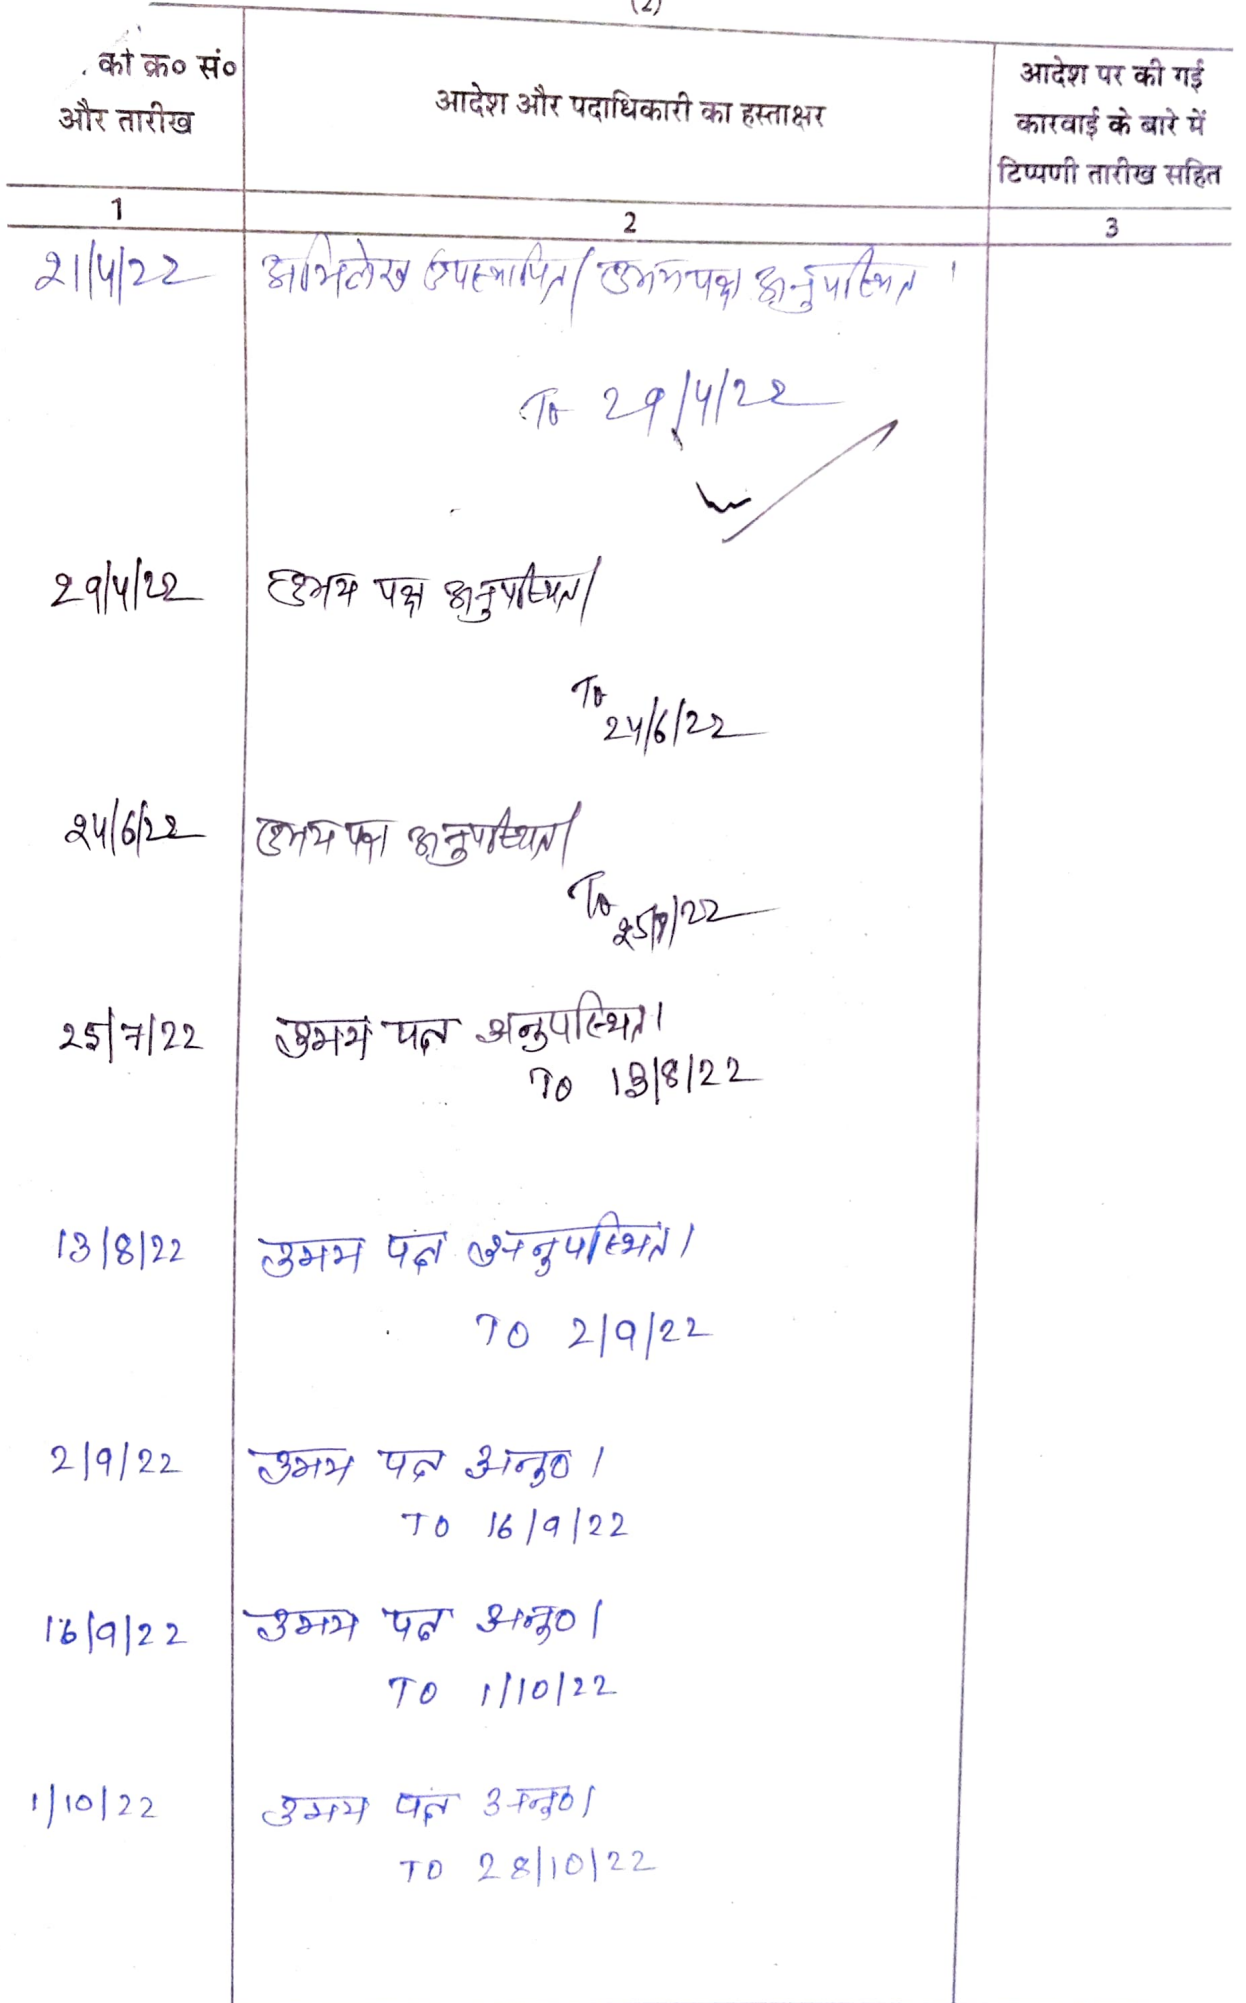 (2)
की क्र० सं०
और तारीख
आदेश और पदाधिकारी का हस्ताक्षर
आदेश पर की गई
कारवाई के बारे में
टिप्पणी तारीख सहित
1
2
3
21/4/22 अभिलेख उपस्थापित। उभय पक्ष अनुपस्थित।
To 29/4/22
29/4/22 उभय पक्ष अनुपस्थित।
To
24/6/22
24/6/22 उभय पक्ष अनुपस्थित।
To
25/7/22
25/7/22 उभय पक्ष अनुपस्थित।
TO 13/8/22
13/8/22 उभय पक्ष अनुपस्थित।
TO 2/9/22
2/9/22 उभय पक्ष अनु०।
TO 16/9/22
16/9/22 उभय पक्ष अनु०।
TO 1/10/22
1/10/22 उभय पक्ष अनु०।
TO 28/10/22